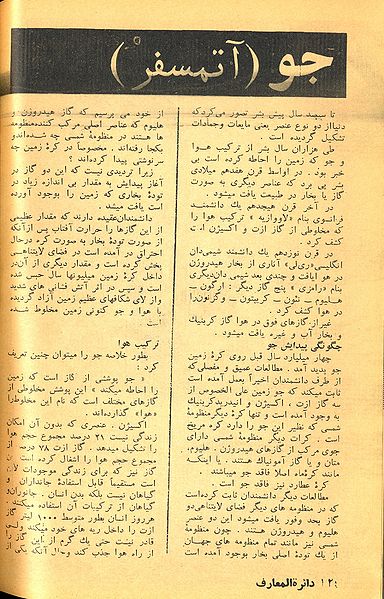 جو (آتمسفر)
تا سیصد سال پیش بشر تصور می‌کرد که
دنیا از دو نوع عنصر یعنی مایعات و جمادات
تشکیل گردیده است.
طی هزاران سال بشر از ترکیب هوا
و جو که زمین را احاطه کرده است بی
خبر بود. در اواسط قرن هفدهم میلادی
بشر پی برد که عناصر دیگری به صورت
گاز یا بخار در طبیعت یافت میشود.
در آخر قرن هیجدهم یک دانشمند
فرانسوی بنام «لاووازیه» ترکیب هوا را
که مخلوطی از گاز ازت و اکسیژن است
کشف کرد.
در قرن نوزدهم یک دانشمند شیمی‌دان
انگلیسی «ری‌لی» آثاری از بخار هیدروژن
در هوا یافت و چندی بعد شیمی دان دیگری
بنام «رامزی» پنج گاز دیگر: ارگون ـ
هلیوم ـ نئون ـ کریپتون ـ و گزنون را
در هوا کشف کرد.
غیر از گازهای فوق در هوا گاز کربنیک
و بخار آب و غیره یافت میشود.
چگونگی پیدایش جو
چهار میلیارد سال قبل روی کرهٔ زمین
جو پدید آمد. مطالعات عمیق و مفصلی که
از طرف دانشمندان اخیراً بعمل آمده است
ثابت میکند که جو زمین علی الخصوص از
سه گاز ازت، اکسیژن و انیدرید کربنیک
به وجود آمده است و تنها کرهٔ دیگر منظومهٔ
شمسی که نظیر این جو را دارد کره مریخ
است. کرات دیگر منظومهٔ شمسی دارای
جوی مرکب از گازهای هیدروژن، هلیوم،
متان و یا گاز آمونیاک هستند. یا اینکه
مانند کرهٔ ماه اصلا فاقد جو میباشند.
کرهٔ عطارد نیز فاقد جو است.
مطالعات دیگر دانشمندان ثابت کرده است
که در منظومه های دیگر فضای لایتناهی دو
گاز بحد وفور یافت میشود این دو عنصر
هیدروژن و هلیوم هستند. چون منظومهٔ
شمسی نیز مانند تمام منظومه های جهان
از یک تودهٔ اصلی بخار بوجود آمده است
از خود می پرسیم که گاز هیدروژن و
هلیوم که عناصر اصلی مرکب کننده منظومه
ها هستند در منظومهٔ شمسی چه شده‌اند و
یکجا رفته‌اند. مخصوصاً در کرهٔ زمین چه
سرنوشتی پیدا کرده‌اند؟
زیرا تردیدی نیست که این دو گاز در
آغاز پیدایش به مقدار بی اندازه زیاد در
تودهٔ بخاری که زمین را بوجود آورده
است یافت میشد.
دانشمندان عقیده دارند که مقدار عظیمی
از این گازها را حرارت آفتاب پس از آنکه
از صورت تودهٔ بخار به صورت کره درحال
احتراق در آمده است در فضای لایتناهی
پخش کرده است و مقدار دیگری از آن در
داخل کرهٔ زمین میلیونها سال حبس شده
است و سپس در اثر آتش فشانی های شدید
و از لای شکافهای عظیم زمین آزاد گردیده
با هوا و جو کنونی زمین مخلوط شده
است.
ترکیب هوا
بطور خلاصه جو را میتوان چنین تعریف
کرد:
« جو پوششی از گاز است که زمین
را احاطه میکند » این پوشش مخلوطی از
گازهای مختلف است که نام این مخلوط را
«هوا» گذارده‌اند.
اکسیژن. عنصری که بدون آن امکان
زندگی نیست ۲۱ درصد مجموع حجم هوا
را تشکیل میدهد. گاز ازت ۷۸ درصد از
مجموع حجم هوا را اشغال کرده است این
گاز نیز که برای زندگی موجودات لازم
است مستقیماً قابل استفادهٔ جانداران و
گیاهان نیست بلکه بدن انسان. جانوران و
گیاهان از ترکیبات آن استفاده میکنند.
هر روز انسان بطور متوسط ۱۰۰۰ لیتر گاز
ازت را داخل ریه های خود میکند ولی
قادر نیست حتی یک گرم از این گاز را
از راه هوا جذب کند و حال آنکه یکی از
۱۲٤ دائرةالمعارف